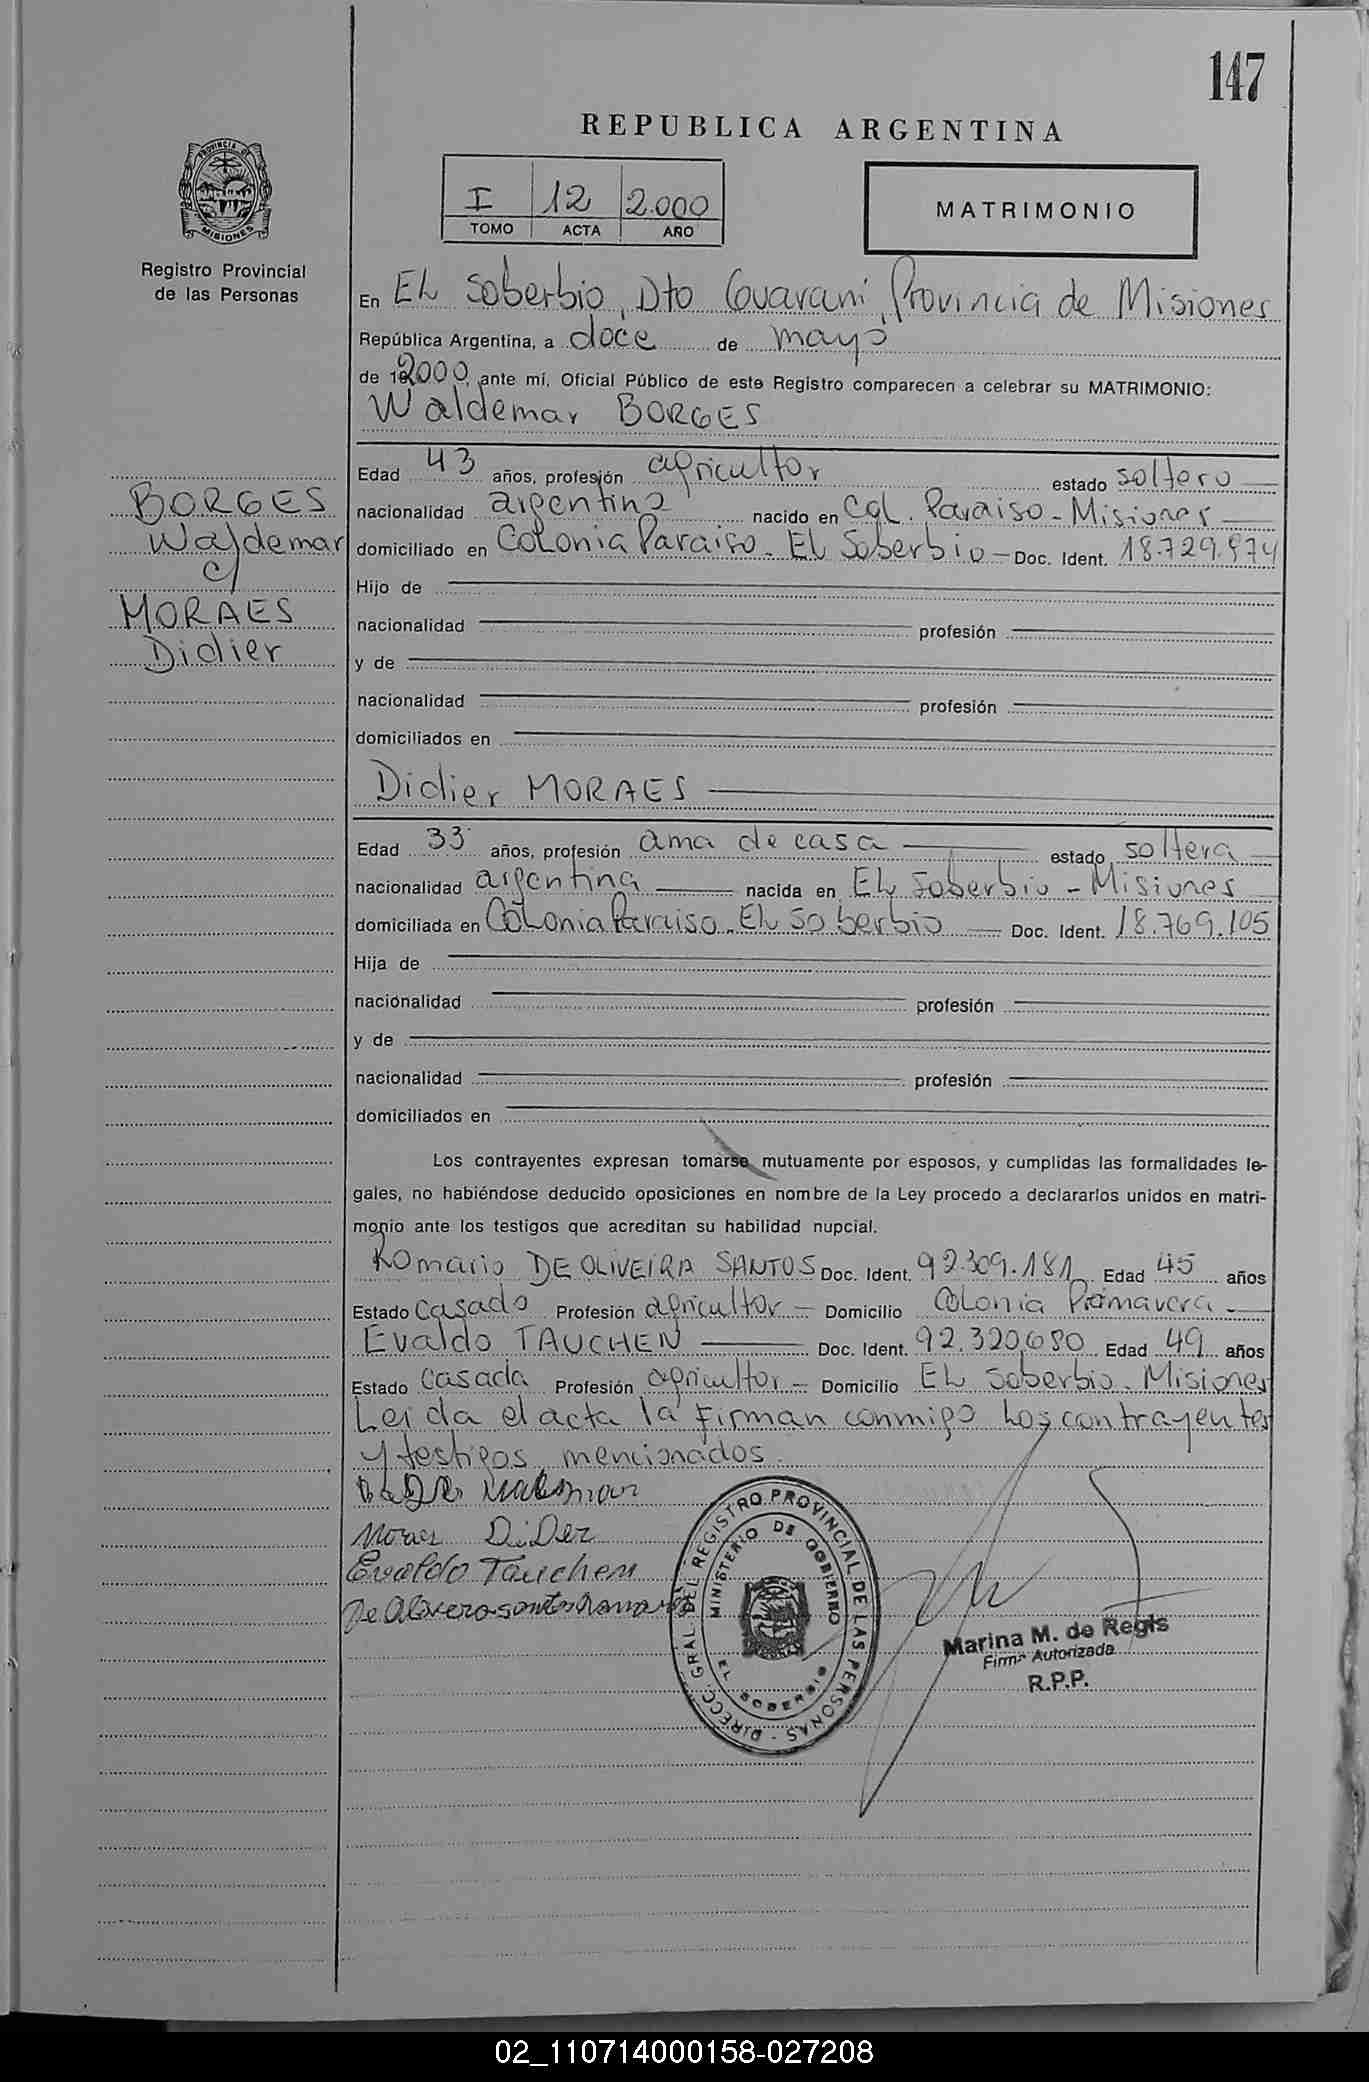 147
REPUBLICA ARGENTINA
PROVINCIA DE MISIONES
Registro Provincial
de las Personas
I 12 2.000
TOMO ACTA AÑO
MATRIMONIO
En EL Soberbio, Dto Guaraní, Provincia de Misiones
República Argentina, a doce de mayo
de 2000, ante mí, Oficial Público de este Registro comparecen a celebrar su MATRIMONIO:
Waldemar BORGES
Edad 43 años, profesión agricultor estado soltero
nacionalidad argentina nacido en Col. Paraiso - Misiones
domiciliado en Colonia Paraiso - EL Soberbio - Doc. Ident. 18.729.974
Hijo de
nacionalidad profesión
y de
nacionalidad profesión
domiciliados en
BORGES
Waldemar
c/
MORAES
Didier
Didier MORAES
Edad 33 años, profesión ama de casa estado soltera
nacionalidad argentina nacida en EL Soberbio - Misiones
domiciliada en Colonia Paraiso. EL Soberbio Doc. Ident. 18.769.105
Hija de
nacionalidad profesión
y de
nacionalidad profesión
domiciliados en
Los contrayentes expresan tomarse mutuamente por esposos, y cumplidas las formalidades le-
gales, no habiéndose deducido oposiciones en nombre de la Ley procedo a declararlos unidos en matri-
monio ante los testigos que acreditan su habilidad nupcial.
Romario DE OLIVEIRA SANTOS Doc. Ident. 92.309.181 Edad 45 años
Estado casado Profesión agricultor - Domicilio Colonia Primavera
Evaldo TAUCHEN Doc. Ident. 92.320.680 Edad 49 años
Estado Casada Profesión agricultor - Domicilio EL Soberbio. Misiones
Leida el acta la firman conmigo los contrayentes
y testigos mencionados.
Moraes DiDer
Evaldo Tauchen
DIRECC. GRAL. DEL REGISTRO PROVINCIAL DE LAS PERSONAS -
MINISTERIO DE GOBIERNO
EL SOBERBIO
Marina M. de Regis
Firma Autorizada
R.P.P.
02_110714000158-027208